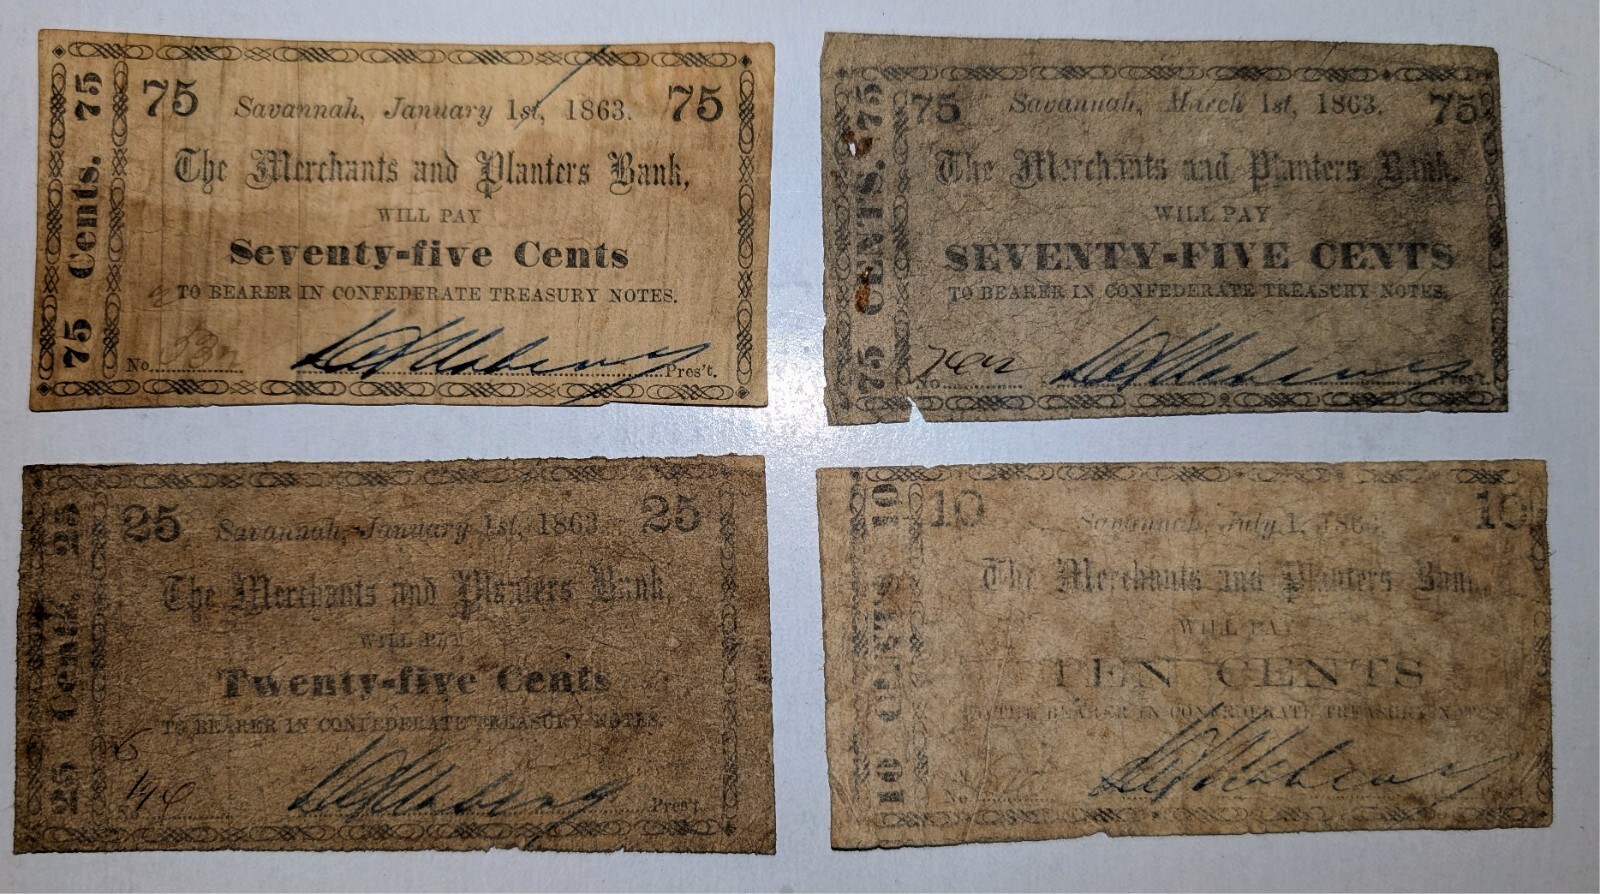 75 Cents. 75
75 Savannah, January 1st, 1863. 75
The Merchants and Planters Bank,
WILL PAY
Seventy-five Cents
TO BEARER IN CONFEDERATE TREASURY NOTES.
No. Pres't.
75 CENTS. 75
75 Savannah, March 1st, 1863. 75
The Merchants and Planters Bank,
WILL PAY
SEVENTY-FIVE CENTS
TO BEARER IN CONFEDERATE TREASURY NOTES.
No. Pres't.
25 Cents. 25
25 Savannah, January 1st, 1863. 25
The Merchants and Planters Bank,
WILL PAY
Twenty-five Cents
TO BEARER IN CONFEDERATE TREASURY NOTES.
No. Pres't.
10 CENTS 10
10 Savannah, July 1, 10
The Merchants and Planters Bank,
WILL PAY
TEN CENTS
TO THE BEARER IN CONFEDERATE TREASURY NOTES
No.